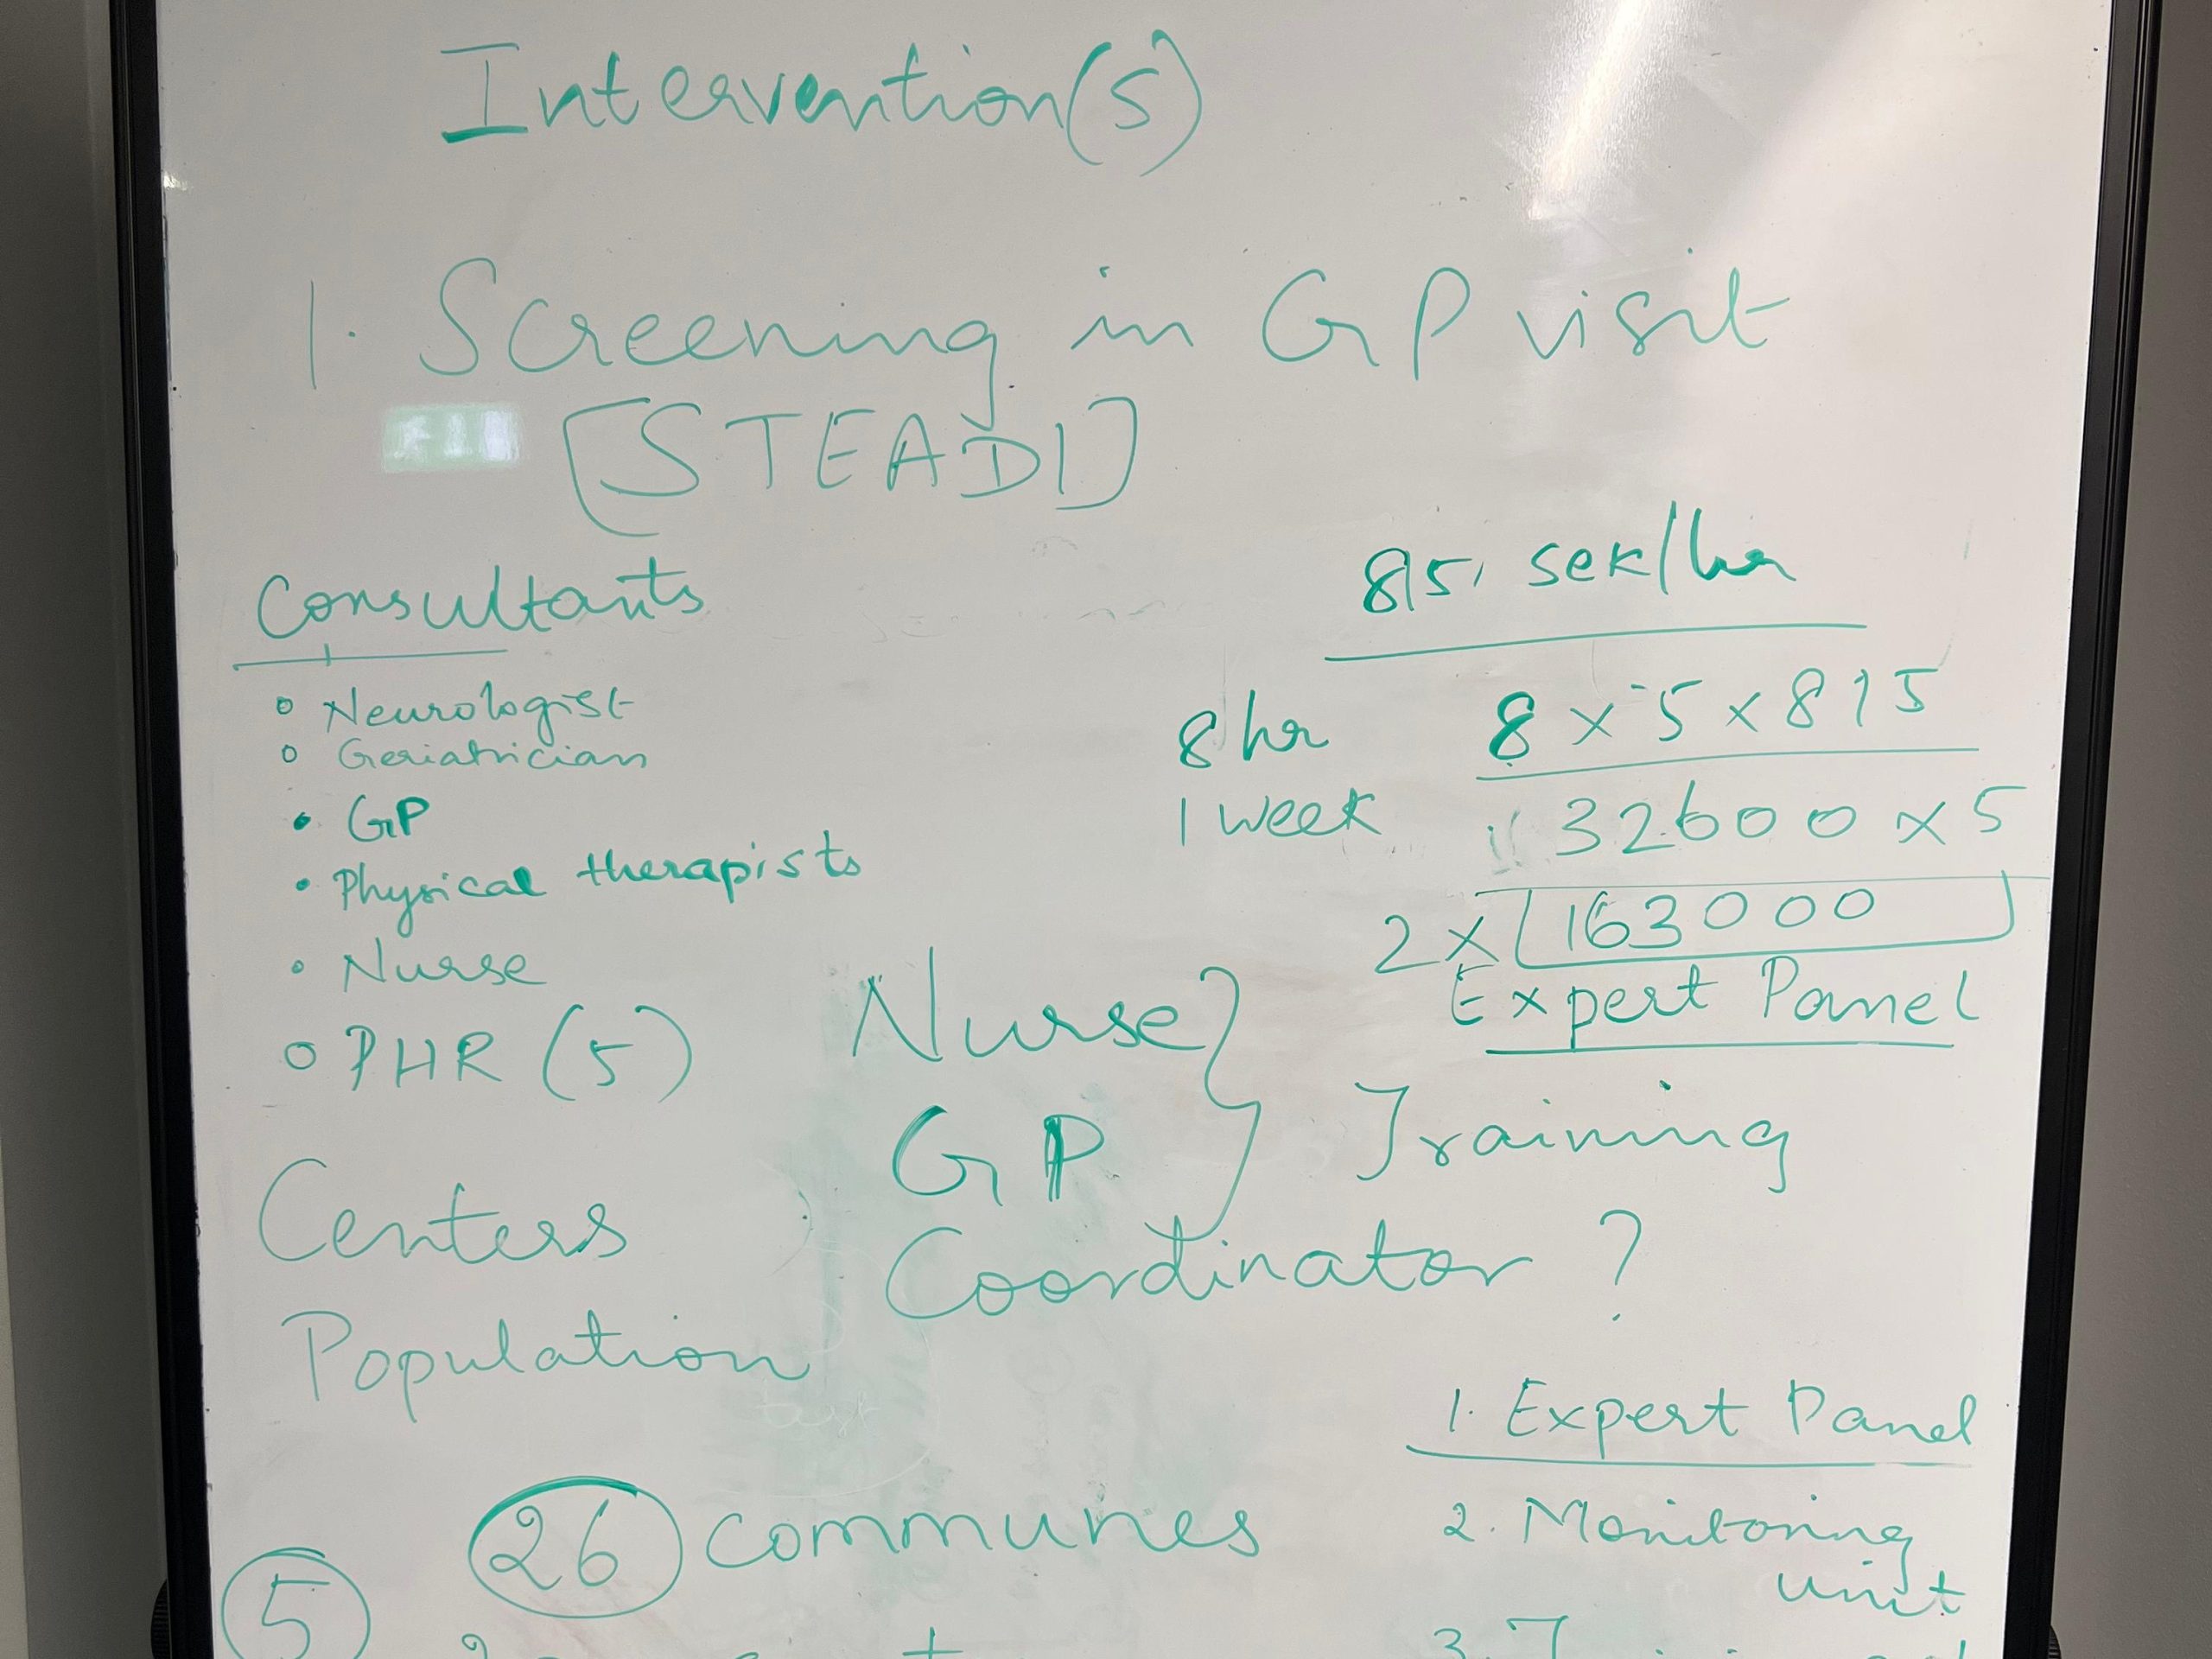 Intervention(s)
1. Screening in GP visit
[STEADI]
Consultants
Neurologist
Geriatrician
GP
Physical therapists
Nurse
PHR (5)
815, sek/hr
8 hr 8 x 5 x 815
1 week 32600 x 5
2 x [163000]
Expert Panel
Nurse
GP
Coordinator ?
Training
Centers
Population
26 communes
5
1. Expert Panel
2. Monitoring
unit
3.